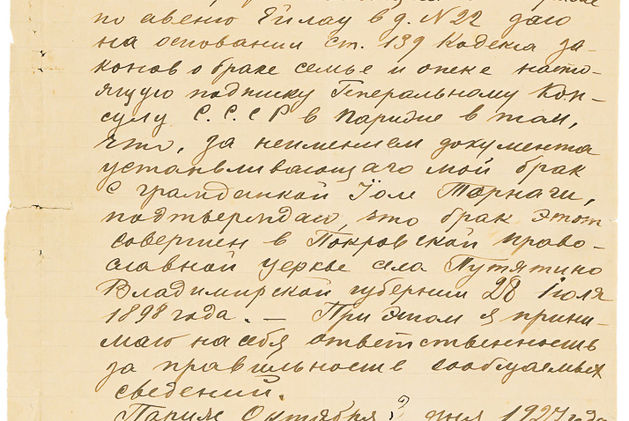 по авеню Ейлау в д. N 22 даю
на основании ст. 139 Кодекса за-
конов о браке семье и опеке насто-
ящую подписку Генеральному Кон-
сулу С.С.С.Р в Париже в том,
что, за неимением документа
устанавливающаго мой брак
с гражданкой Іоле Торнаги,
подтверждаю, что брак этот
совершен в Покровской право-
славной церкве села Путятино
Владимирской губернии 28 Іюля
1898 года. — При этом я прини-
маю на себя ответственность
за правильность сообщаемых
сведений.
Париж Октября ? дня 1927 года